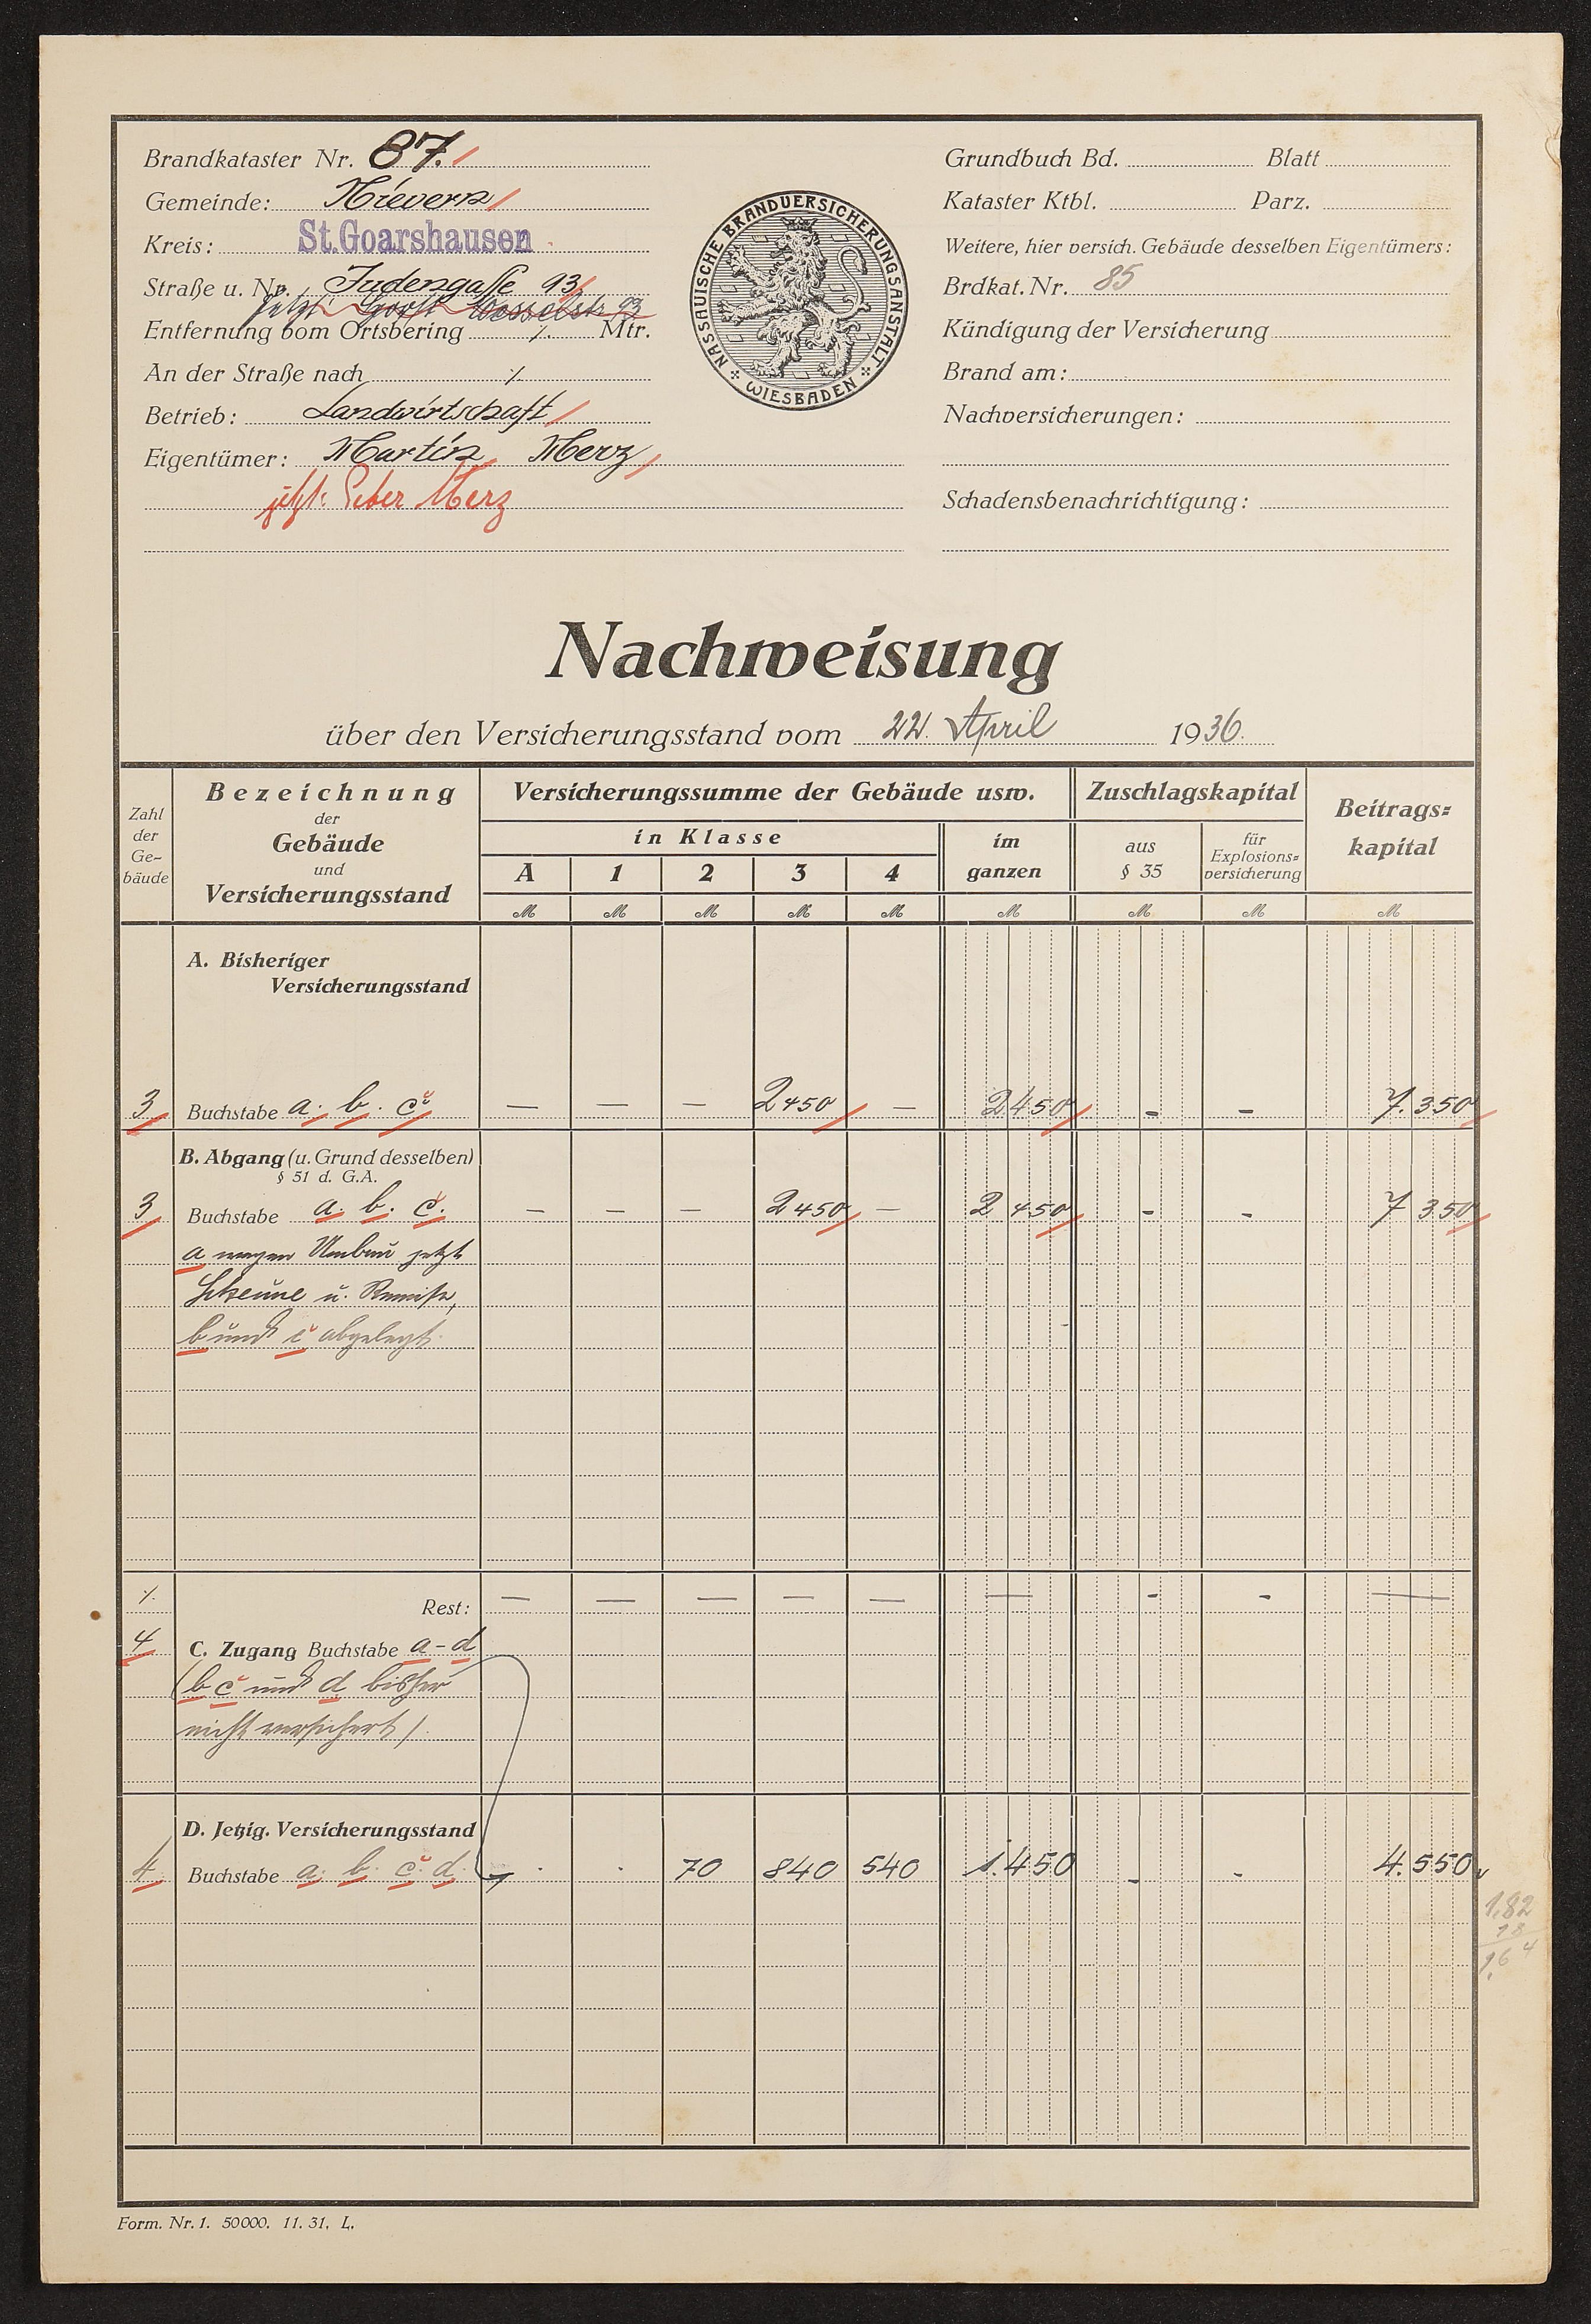 Brandkataster Nr. 87.
Gemeinde: Nievern
Kreis: St. Goarshausen
Straße u. Nr. Judengasse 93
jetzt Horst Wesselstr. 93
Entfernung vom Ortsbering ./. Mtr.
An der Straße nach ./.
Betrieb: Landwirtschaft
Eigentümer: Martin Merz
jetzt: Peter Merz
NASSAUISCHE BRANDVERSICHERUNGSANSTALT
WIESBADEN
Grundbuch Bd. Blatt
Kataster Ktbl. Parz.
Weitere, hier versich. Gebäude desselben Eigentümers:
Brdkat. Nr. 85
Kündigung der Versicherung
Brand am:
Nachversicherungen:
Schadensbenachrichtigung:
Nachweisung
über den Versicherungsstand vom 22. April 1936.
Zahl der Ge-bäude
Bezeichnung
der
Gebäude
und
Versicherungsstand
Versicherungssumme der Gebäude usw.
in Klasse
A 1 2 3 4
im ganzen
Zuschlagskapital
aus § 35
für Explosions=versicherung
Beitrags=kapital
M M M M M M M M M
A. Bisheriger
Versicherungsstand
3 Buchstabe a. b. c. — — — 2450 — 2450 - - 7.350
B. Abgang (u. Grund desselben)
§ 51 d. G.A.
3 Buchstabe a. b. c. — — — 2450 — 2 450 - - 7 350
a wegen Umbau jetzt
Scheune u. Remise,
b und c abgelegt.
./. Rest: — — — — — — - - —
4 C. Zugang Buchstabe a-d
(b c und d bisher
nicht versichert).
D. Jetzig. Versicherungsstand
4 Buchstabe a. b. c. d. . . 70 840 540 1.450 - - 4.550
1,82
18
1,64
Form. Nr. 1. 50000. 11. 31. L.